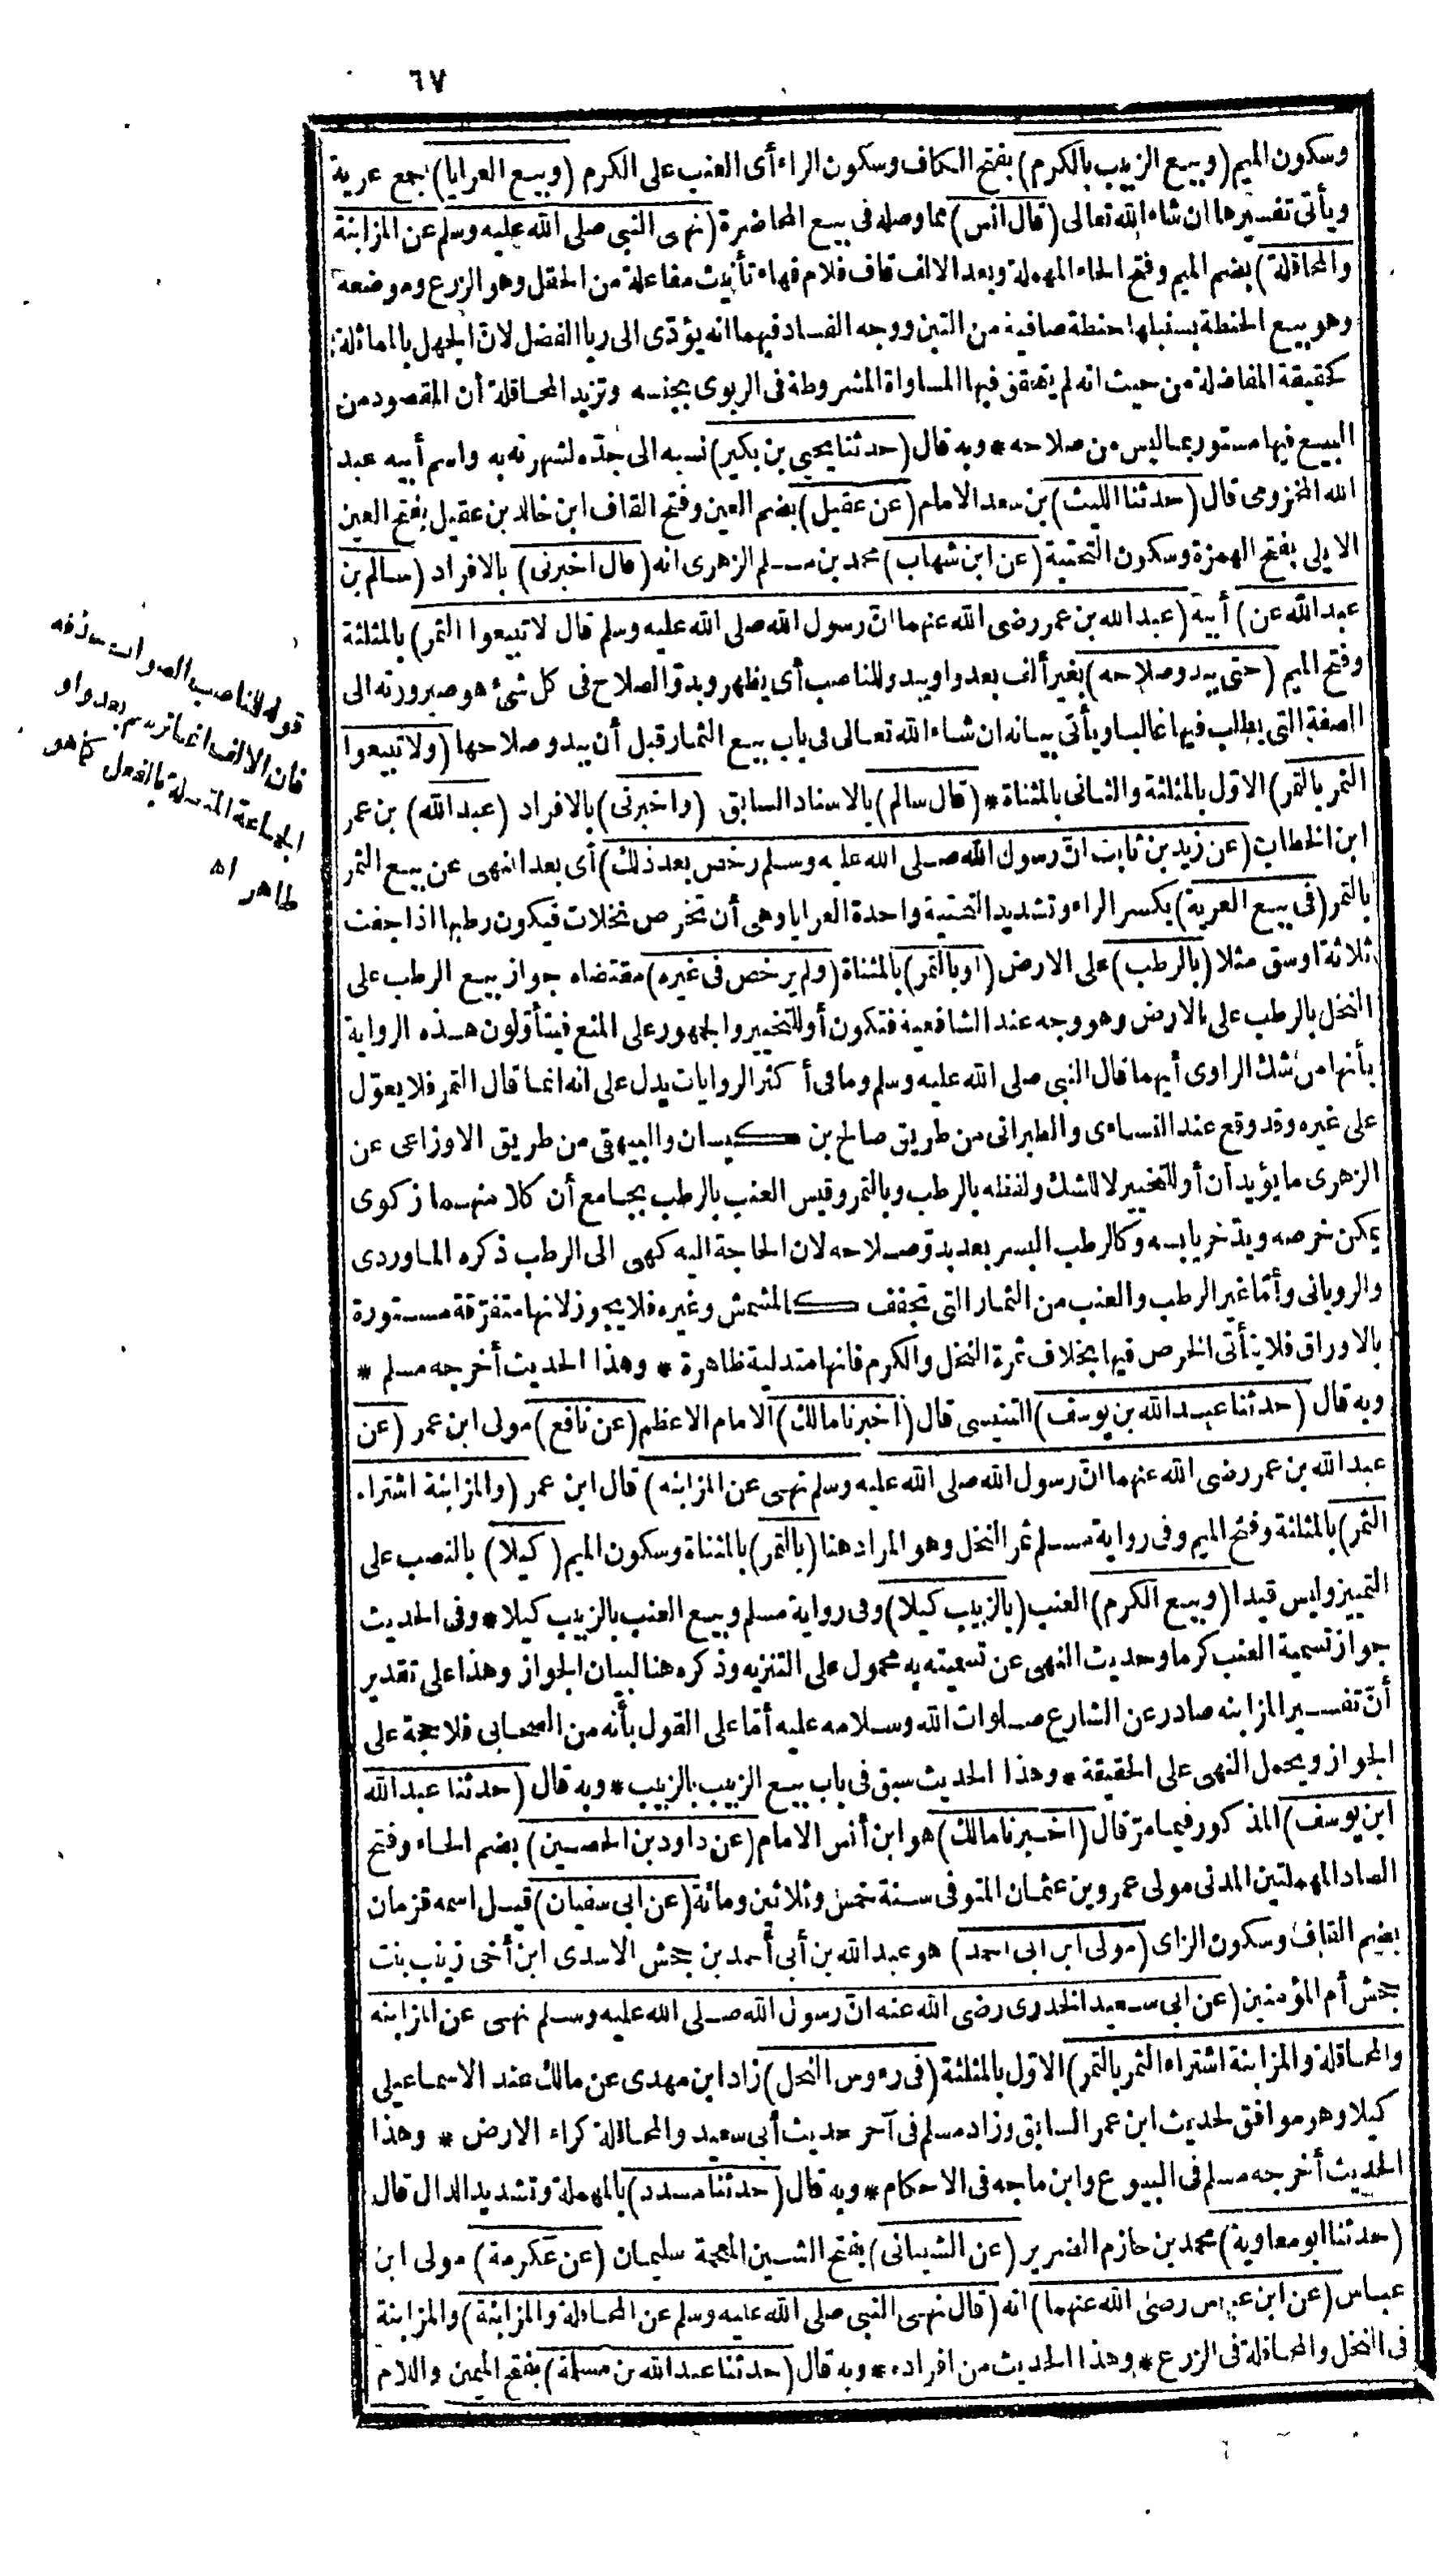 ٦٧
وسكون الميم (وبيع الزبيب بالكرم) بفتح الكاف وسكون الراء أى العنب على الكرم (وبيع العرايا) جمع عرية
ويأتى تفسيرها ان شاء الله تعالى (قال أنس) مما وصله فى بيع المخاضرة (نهى النبى صلى الله عليه وسلم عن المزابنة
والمحاقلة) بضم الميم وفتح الحاء المهملة وبعد الالف قاف فلام فهاء تأنيث مفاعلة من الحقل وهو الزرع وموضعه
وهو بيع الحنطة بسنبلها بحنطة صافية من التبن ووجه الفساد فيهما انه يؤدّى الى ربا الفضل لانّ الجهل بالمماثلة
كحقيقة المفاضلة من حيث انه لم يتحقق فيها المساواة المشروطة فى الربوى بجنسه وتزيد المحاقلة أن المقصود من
البيع فيها مستور بما ليس من صلاحه * وبه قال (حدثنا يحيى بن بكير) نسبه الى جدّه لشهرته به واسم أبيه عبد
الله المخزومى قال (حدثنا الليث) بن سعد الامام (عن عقيل) بضم العين وفتح القاف ابن خالد بن عقيل بفتح العين
الايلى بفتح الهمزة وسكون التحتية (عن ابن شهاب) محمد بن مسلم الزهرى انه (قال اخبرنى) بالافراد (سالم بن
عبد الله عن) أبيه (عبد الله بن عمر رضى الله عنهما انّ رسول الله صلى الله عليه وسلم قال لا تبيعوا الثمر) بالمثلثة
وفتح الميم (حتى يبدو صلاحه) بغير ألف بعد واو يبدو للناصب أى يظهر وبدوّ الصلاح فى كل شئ هو صيرورته الى
الصفة التى يطلب فيها غالبا ويأتى بيانه ان شاء الله تعالى فى باب بيع الثمار قبل أن يبدو صلاحها (ولا تبيعوا
الثمر بالتمر) الاوّل بالمثلثة والثانى بالمثناة * (قال سالم) بالاسناد السابق (واخبرنى) بالافراد (عبد الله) بن عمر
ابن الخطاب (عن زيد بن ثابت انّ رسول الله صلى الله عليه وسلم رخص بعد ذلك) أى بعد النهى عن بيع الثمر
بالتمر (فى بيع العرية) بكسر الراء وتشديد التحتية واحدة العرايا وهى أن تخرص نخلات فيكون رطبها اذا جفت
ثلاثة اوسق مثلا (بالرطب) على الارض (اوبالتمر) بالمثناة (ولم يرخص فى غيره) مقتضاه جواز بيع الرطب على
النخل بالرطب على الارض وهو وجه عند الشافعية فتكون أو للتخيير والجمهور على المنع فيتأوّلون هذه الرواية
بأنها من شك الراوى أيهما قال النبى صلى الله عليه وسلم وما فى أكثر الروايات يدل على انه انما قال التمر فلا يعوّل
على غيره وقد وقع عند النساءى والطبرانى من طريق صالح بن كيسان والبيهقى من طريق الاوزاعى عن
الزهرى ما يؤيد أن أو للتخيير لا للشك ولفظه بالرطب وبالتمر وقيس العنب بالرطب بجامع أن كلا منهما زكوى
يمكن خرصه ويدّخر يابسه وكالرطب البسر بعد بدوّ صلاحه لان الحاجة اليه كهى الى الرطب ذكره الماوردى
والرويانى وأمّا غير الرطب والعنب من الثمار التى تجفف كالمشمش وغيره فلا يجوز لانها متفرّقة مستورة
بالاوراق فلا يتأتى الخرص فيها بخلاف ثمرة النخل والكرم فانها متدلية ظاهرة * وهذا الحديث أخرجه مسلم *
وبه قال (حدثنا عبد الله بن يوسف) التنيسى قال (اخبرنا مالك) الامام الاعظم (عن نافع) مولى ابن عمر (عن
عبد الله بن عمر رضى الله عنهما انّ رسول الله صلى الله عليه وسلم نهى عن المزابنة) قال ابن عمر (والمزابنة اشتراء
الثمر) بالمثلثة وفتح الميم وفى رواية مسلم ثمر النخل وهو المراد هنا (بالتمر) بالمثناة وسكون الميم (كيلا) بالنصب على
التمييز وليس قيدا (وبيع الكرم) العنب (بالزبيب كيلا) وفى رواية مسلم وبيع العنب بالزبيب كيلا * وفى الحديث
جواز تسمية العنب كرما وحديث النهى عن تسميته به محمول على التنزيه وذكره هنا لبيان الجواز وهذا على تقدير
أنّ تفسير المزابنه صادر عن الشارع صلوات الله وسلامه عليه أمّا على القول بأنه من الصحابى فلا حجة على
الجواز ويحمل النهى على الحقيقة * وهذا الحديث سبق فى باب بيع الزبيب بالزبيب * وبه قال (حدثنا عبد الله
ابن يوسف) المذكور فيما مرّ قال (اخبرنا مالك) هو ابن أنس الامام (عن داود بن الحصين) بضم الحاء وفتح
الصاد المهملتين المدنى مولى عمرو بن عثمان المتوفى سنة خمس وثلاثين ومائة (عن ابى سفيان) قيل اسمه قزمان
بضم القاف وسكون الزاى (مولى ابن ابى احمد) هو عبد الله بن أبى أحمد بن جحش الاسدى ابن أخى زينب بنت
جحش أم المؤمنين (عن ابى سعيد الخدرى رضى الله عنه انّ رسول الله صلى الله عليه وسلم نهى عن المزابنه
والمحاقلة والمزابنة اشتراء الثمر بالتمر) الاوّل بالمثلثة (فى رءوس النخل) زاد ابن مهدى عن مالك عند الاسماعيلى
كيلا وهو موافق لحديث ابن عمر السابق وزاد مسلم فى آخر حديث أبى سعيد والمحاقلة كراء الارض * وهذا
الحديث أخرجه مسلم فى البيوع وابن ماجه فى الاحكام * وبه قال (حدثنا مسدد) بالمهملة وتشديد الدال قال
(حدثنا ابو معاوية) محمد بن خازم الضرير (عن الشيبانى) بفتح الشين المعجمة سليمان (عن عكرمة) مولى ابن
عباس (عن ابن عباس رضى الله عنهما) انه (قال نهى النبى صلى الله عليه وسلم عن المحاقلة والمزابنة) والمزابنة
فى النخل والمحاقلة فى الزرع * وهذا الحديث من افراده * وبه قال (حدثنا عبد الله بن مسلمة) بفتح الميمين واللام
قوله للناصب الصواب حذفه
فان الالف انما ترسم بعد واو
الجماعة المتصلة بالفعل كما هو
ظاهر اه